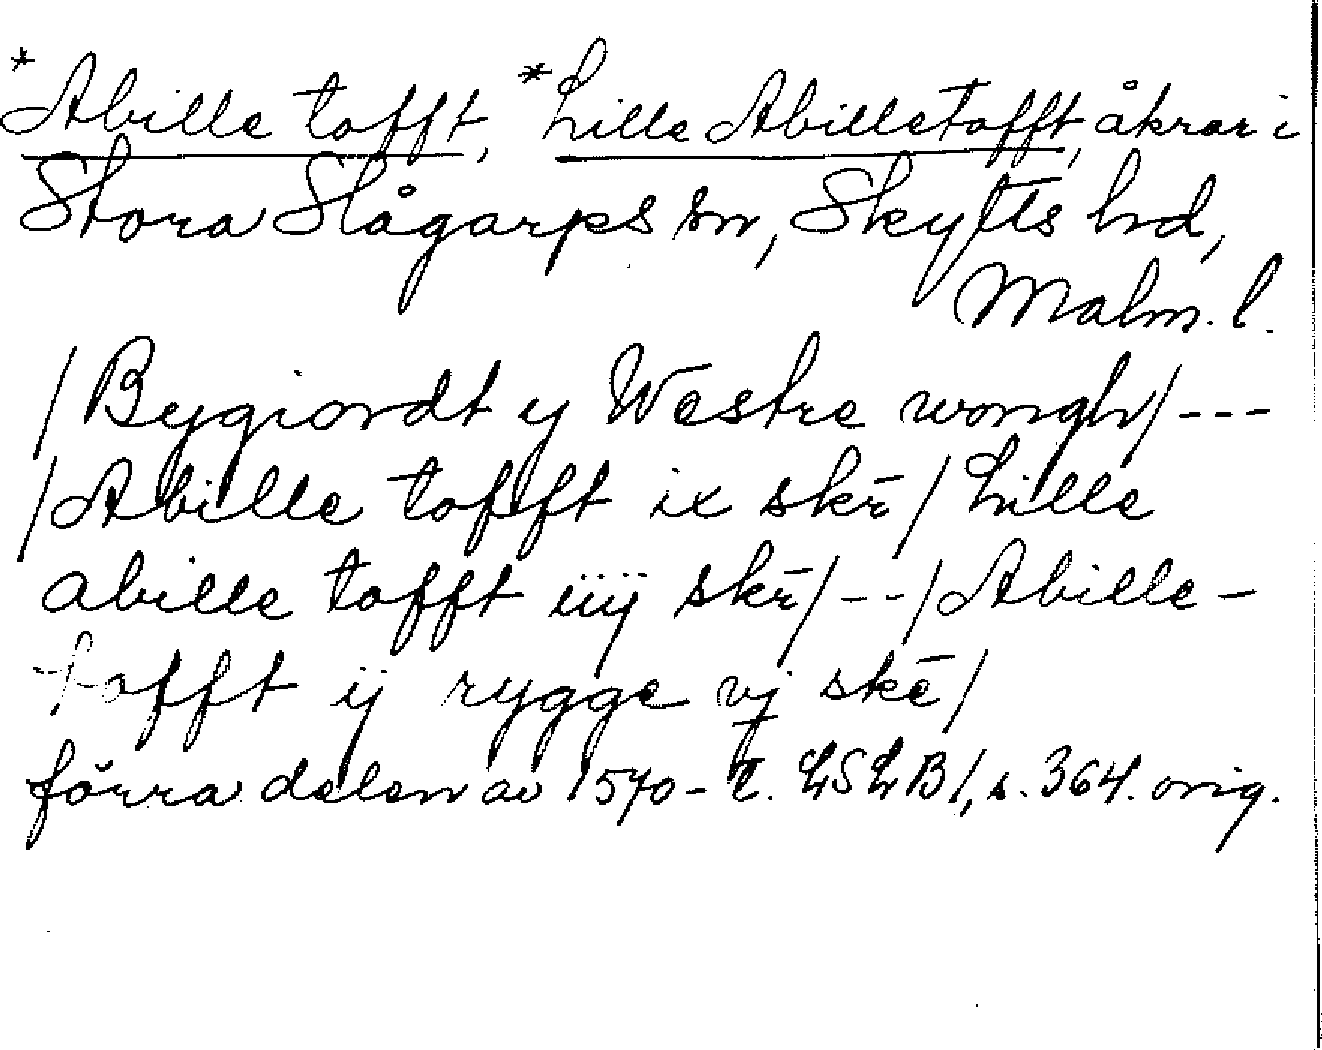 *Abille tofft, *Lille Abilletofft, åkrar i
Stora Slågarps sn, Skytts hd,
Malm. l.
/Bygiordt y Westre wongh/---
/Abille tofft ix skr̄/ Lille
abille tofft iiij skr̄/--/Abille-
tofft ij rygge vj skē/
förra delen av 1570-t. LSLB1, s. 364. orig.